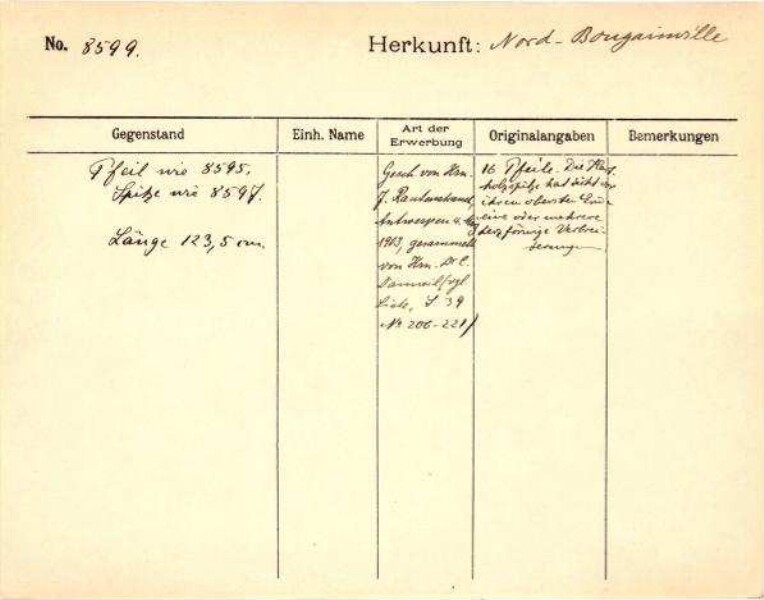 No. 8599. Herkunft: Nord-Bougainville
Gegenstand Einh. Name Art der Erwerbung Originalangaben Bemerkungen
Pfeil wie 8595.
Spitze wie 8597.
Länge 123,5 cm.
Gesch von Hrn.
J. Rautenstrauch,
Antwerpen u.
1913, gesammelt
von Hrn. Dr.
Liste, S 39
No 206-221)
16 Pfeile. Die
holzspitze hat dicht vor
ihrem obersten Ende
eine oder mehrere
herzförmige Verbrei-
terungen